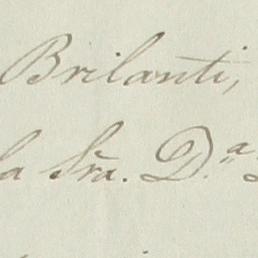 Brilanti,
la Sra. D.ª